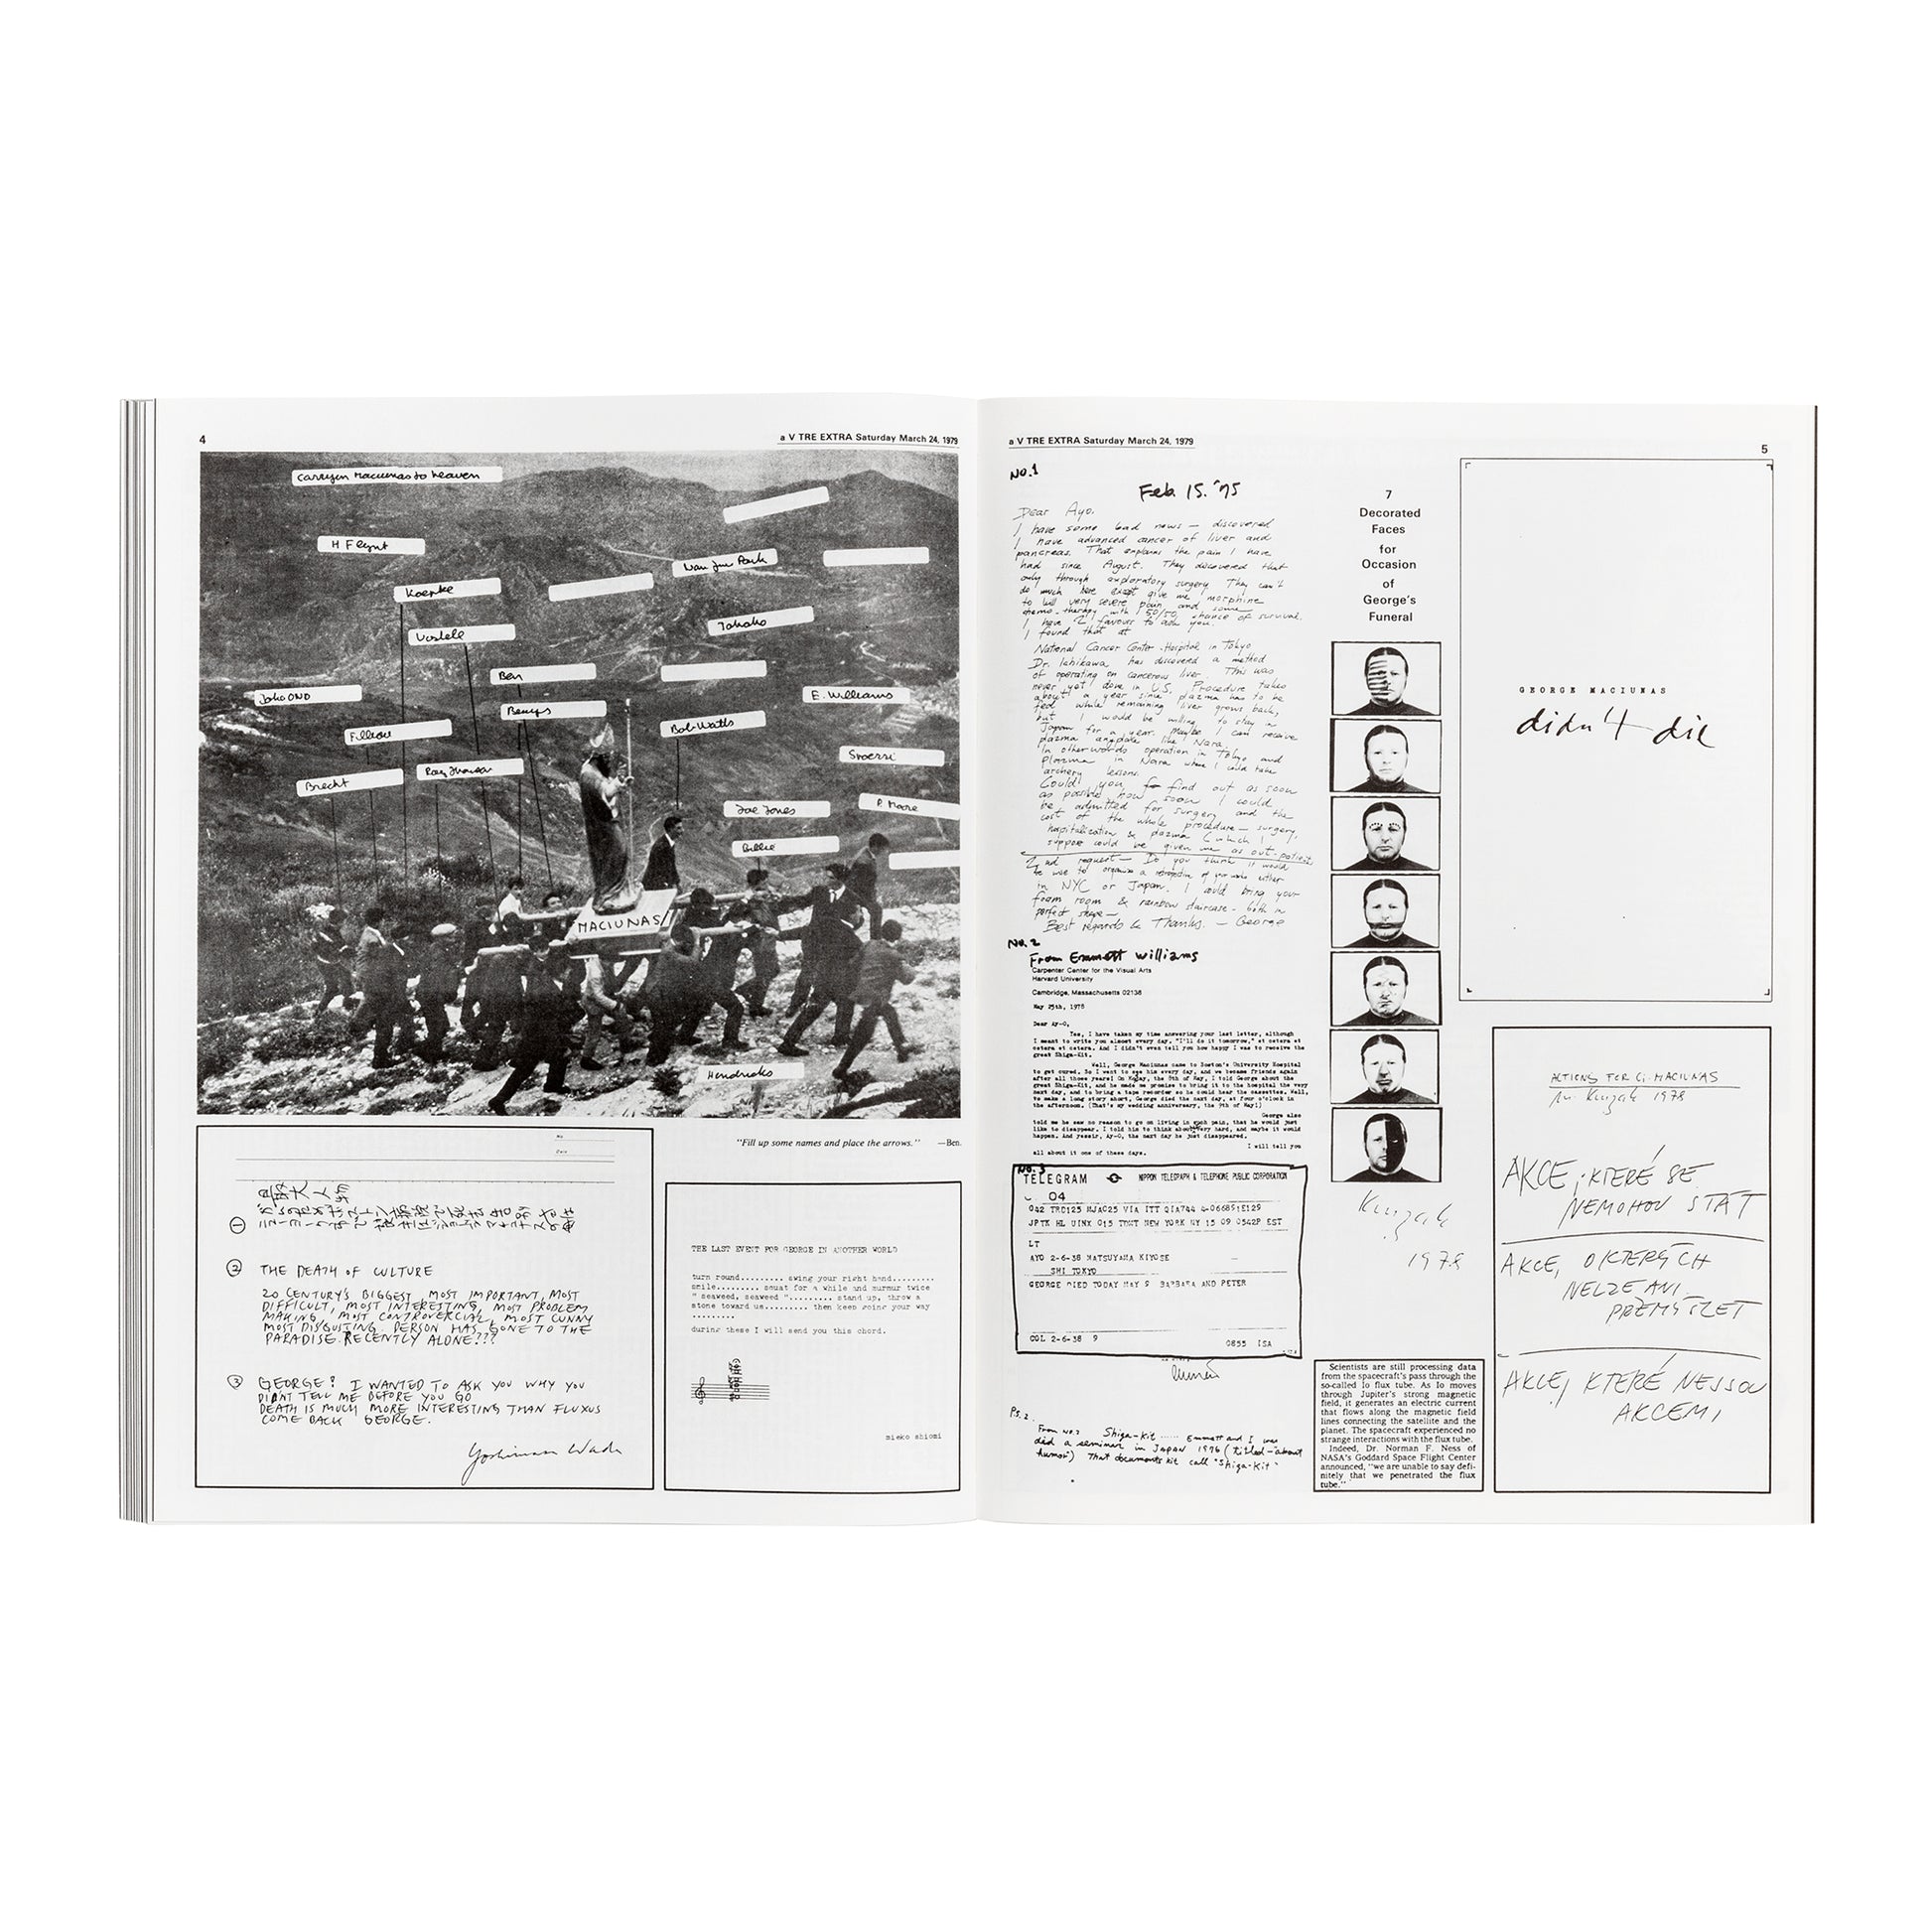 4
a V TRE EXTRA Saturday March 24, 1979
Carryin Maciunas to heaven
H Flynt
Nam Jun Paik
Koepke
Takako
Vostell
Ben
Yoko ONO
E. Williams
Beuys
Bob Watts
Filliou
Spoerri
Brecht
Ray Jhonson
Joe Jones
P. Moore
Billie
MACIUNAS
Hendricks
"Fill up some names and place the arrows." —Ben.
No.
Date
①
② THE DEATH OF CULTURE
20 CENTURY'S BIGGEST, MOST IMPORTANT, MOST
DIFFICULT, MOST INTERESTING, MOST PROBLEM
MAKING, MOST CONTROVERCIAL, MOST CUNNY
MOST DISGUSTING PERSON HAS GONE TO THE
PARADISE RECENTLY ALONE???
③ GEORGE! I WANTED TO ASK YOU WHY YOU
DIDNT TELL ME BEFORE YOU GO
DEATH IS MUCH MORE INTERESTING THAN FLUXUS
COME BACK GEORGE.
Yoshimasa Wada
THE LAST EVENT FOR GEORGE IN ANOTHER WORLD
turn round......... swing your right hand.........
smile......... squat for a while and murmur twice
" seaweed, seaweed "......... stand up, throw a
stone toward us......... then keep going your way
.........
during these I will send you this chord.
mieko shiomi
a V TRE EXTRA Saturday March 24, 1979
5
No.1
Feb. 15. '75
Dear Ayo,
I have some bad news — discovered
I have advanced cancer of liver and
pancreas. That explains the pain I have
had since August. They discovered that
only through exploratory surgery They can't
do much here except give me morphine
to kill very severe pain and some
chemo-therapy with 50/50 chance of survival.
I have 2 favours to ask you.
I found that at
National Cancer Center Hospital in Tokyo
Dr. Ichikawa has discovered a method
of operating on cancerous liver. This was
never yet done in U.S. Procedure takes
about a year since plazma has to be
fed while remaining liver grows back,
but I would be willing to stay in
Japan for a year. Maybe I can receive
plazma anyplace like Nara.
In other words operation in Tokyo and
plazma in Nara where I could take
archery lessons.
Could you find out as soon
as possible how soon I could
be admitted for surgery and the
cost of the whole procedure — surgery,
hospitalization & plazma (which I
suppose could be given me as out-patient
2nd request — Do you think it would
be use to organize a retrospective of your works either
in NYC or Japan. I could bring your
foam room & rainbow staircase - both in
perfect shape —
Best regards & Thanks. — George
No. 2
From Emmett Williams
Carpenter Center for the Visual Arts
Harvard University
Cambridge, Massachusetts 02138
May 25th, 1978
Dear Ay-O,
Yes, I have taken my time answering your last letter, although
I meant to write you almost every day. "I'll do it tomorrow," et cetera et
cetera et cetera. And I didn't even tell you how happy I was to receive the
great Shiga-Kit.
Well, George Maciunas came to Boston's University Hospital
to get cured. So I went to see him every day, and we became friends again
after all those years! On Monday, the 8th of May, I told George about the
great Shiga-Kit, and he made me promise to bring it to the hospital the very
next day, and to bring a tape recorder so he could hear the cassettes. Well,
to make a long story short, George died the next day, at four o'clock in
the afternoon. (That's my wedding anniversary, the 9th of May!)
George also
told me he saw no reason to go on living in such pain, that he would just
like to disappear. I told him to think about very hard, and maybe it would
happen. And yessir, Ay-O, the next day he just disappeared.
I will tell you
all about it one of these days.
No. 3
TELEGRAM NIPPON TELEGRAPH & TELEPHONE PUBLIC CORPORATION
04
LT
AYO 2-6-38 MATSUYAMA KIYOSE
SHI TOKYO
GEORGE DIED TODAY MAY 9 BARBARA AND PETER
COL 2-6-38 9
0855 ISA
PS. 2.
From No.2 Shiga-Kit ..... Emmett and I was
did a seminar in Japan 1976 (titled - "about
humor") That documents kit call "Shiga-Kit"
7
Decorated
Faces
for
Occasion
of
George's
Funeral
Knizak
1978
Scientists are still processing data
from the spacecraft's pass through the
so-called Io flux tube. As Io moves
through Jupiter's strong magnetic
field, it generates an electric current
that flows along the magnetic field
lines connecting the satellite and the
planet. The spacecraft experienced no
strange interactions with the flux tube.
Indeed, Dr. Norman F. Ness of
NASA's Goddard Space Flight Center
announced, "we are unable to say defi-
nitely that we penetrated the flux
tube."
GEORGE MACIUNAS
didn't die
ACTIONS FOR G. MACIUNAS
M. Knizak 1978
AKCE, KTERÉ SE
NEMOHOU STÁT
AKCE, O KTERÝCH
NELZE ANI
PŘEMÝŠLET
AKCE, KTERÉ NEJSOU
AKCEMI